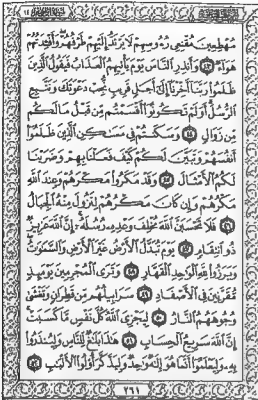 مُهْطِعِينَ مُقْنِعِي رُءُوسِهِمْ لَا يَرْتَدُّ إِلَيْهِمْ طَرْفُهُمْ وَأَفْئِدَتُهُمْ
هَوَاءٌ ﴿٤٣﴾ وَأَنذِرِ النَّاسَ يَوْمَ يَأْتِيهِمُ الْعَذَابُ فَيَقُولُ الَّذِينَ
ظَلَمُوا رَبَّنَا أَخِّرْنَا إِلَىٰ أَجَلٍ قَرِيبٍ نُّجِبْ دَعْوَتَكَ وَنَتَّبِعِ
الرُّسُلَ أَوَلَمْ تَكُونُوا أَقْسَمْتُم مِّن قَبْلُ مَا لَكُم
مِّن زَوَالٍ ﴿٤٤﴾ وَسَكَنتُمْ فِي مَسَاكِنِ الَّذِينَ ظَلَمُوا
أَنفُسَهُمْ وَتَبَيَّنَ لَكُمْ كَيْفَ فَعَلْنَا بِهِمْ وَضَرَبْنَا
لَكُمُ الْأَمْثَالَ ﴿٤٥﴾ وَقَدْ مَكَرُوا مَكْرَهُمْ وَعِندَ اللَّهِ
مَكْرُهُمْ وَإِن كَانَ مَكْرُهُمْ لِتَزُولَ مِنْهُ الْجِبَالُ
﴿٤٦﴾ فَلَا تَحْسَبَنَّ اللَّهَ مُخْلِفَ وَعْدِهِ رُسُلَهُ إِنَّ اللَّهَ عَزِيزٌ
ذُو انتِقَامٍ ﴿٤٧﴾ يَوْمَ تُبَدَّلُ الْأَرْضُ غَيْرَ الْأَرْضِ وَالسَّمَاوَاتُ
وَبَرَزُوا لِلَّهِ الْوَاحِدِ الْقَهَّارِ ﴿٤٨﴾ وَتَرَى الْمُجْرِمِينَ يَوْمَئِذٍ
مُّقَرَّنِينَ فِي الْأَصْفَادِ ﴿٤٩﴾ سَرَابِيلُهُم مِّن قَطِرَانٍ وَتَغْشَىٰ
وُجُوهَهُمُ النَّارُ ﴿٥٠﴾ لِيَجْزِيَ اللَّهُ كُلَّ نَفْسٍ مَّا كَسَبَتْ
إِنَّ اللَّهَ سَرِيعُ الْحِسَابِ ﴿٥١﴾ هَٰذَا بَلَاغٌ لِّلنَّاسِ وَلِيُنذَرُوا
بِهِ وَلِيَعْلَمُوا أَنَّمَا هُوَ إِلَٰهٌ وَاحِدٌ وَلِيَذَّكَّرَ أُولُو الْأَلْبَابِ ﴿٥٢﴾
٢٦١